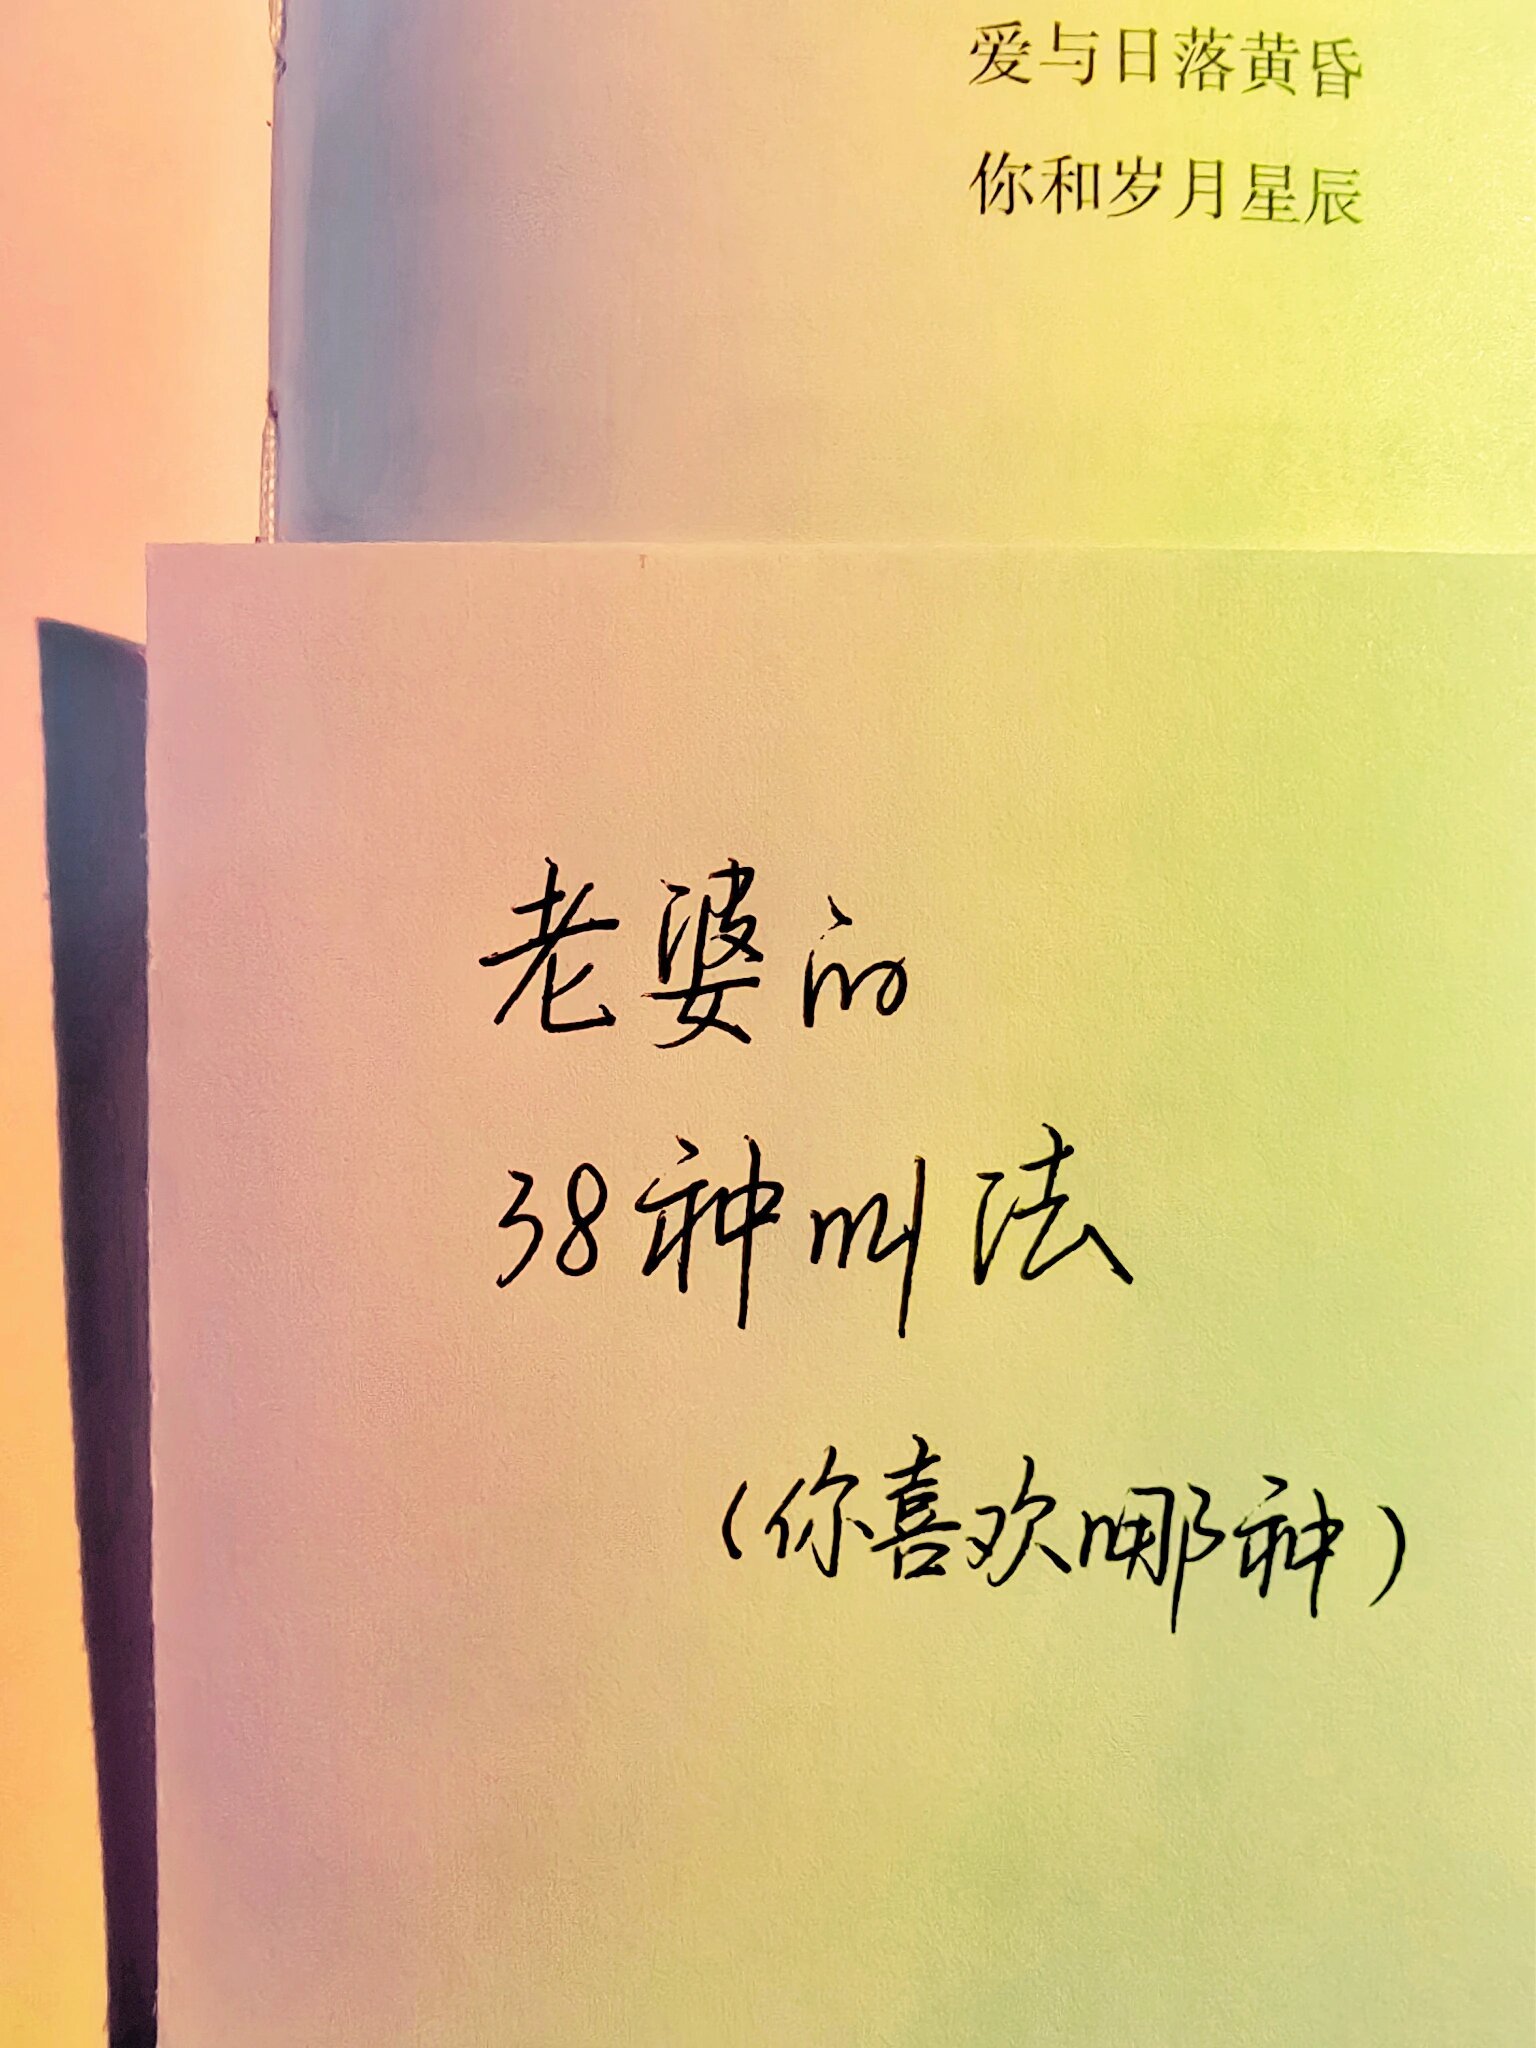 爱与日落黄昏
你和岁月星辰
老婆的
38种叫法
(你喜欢哪种)